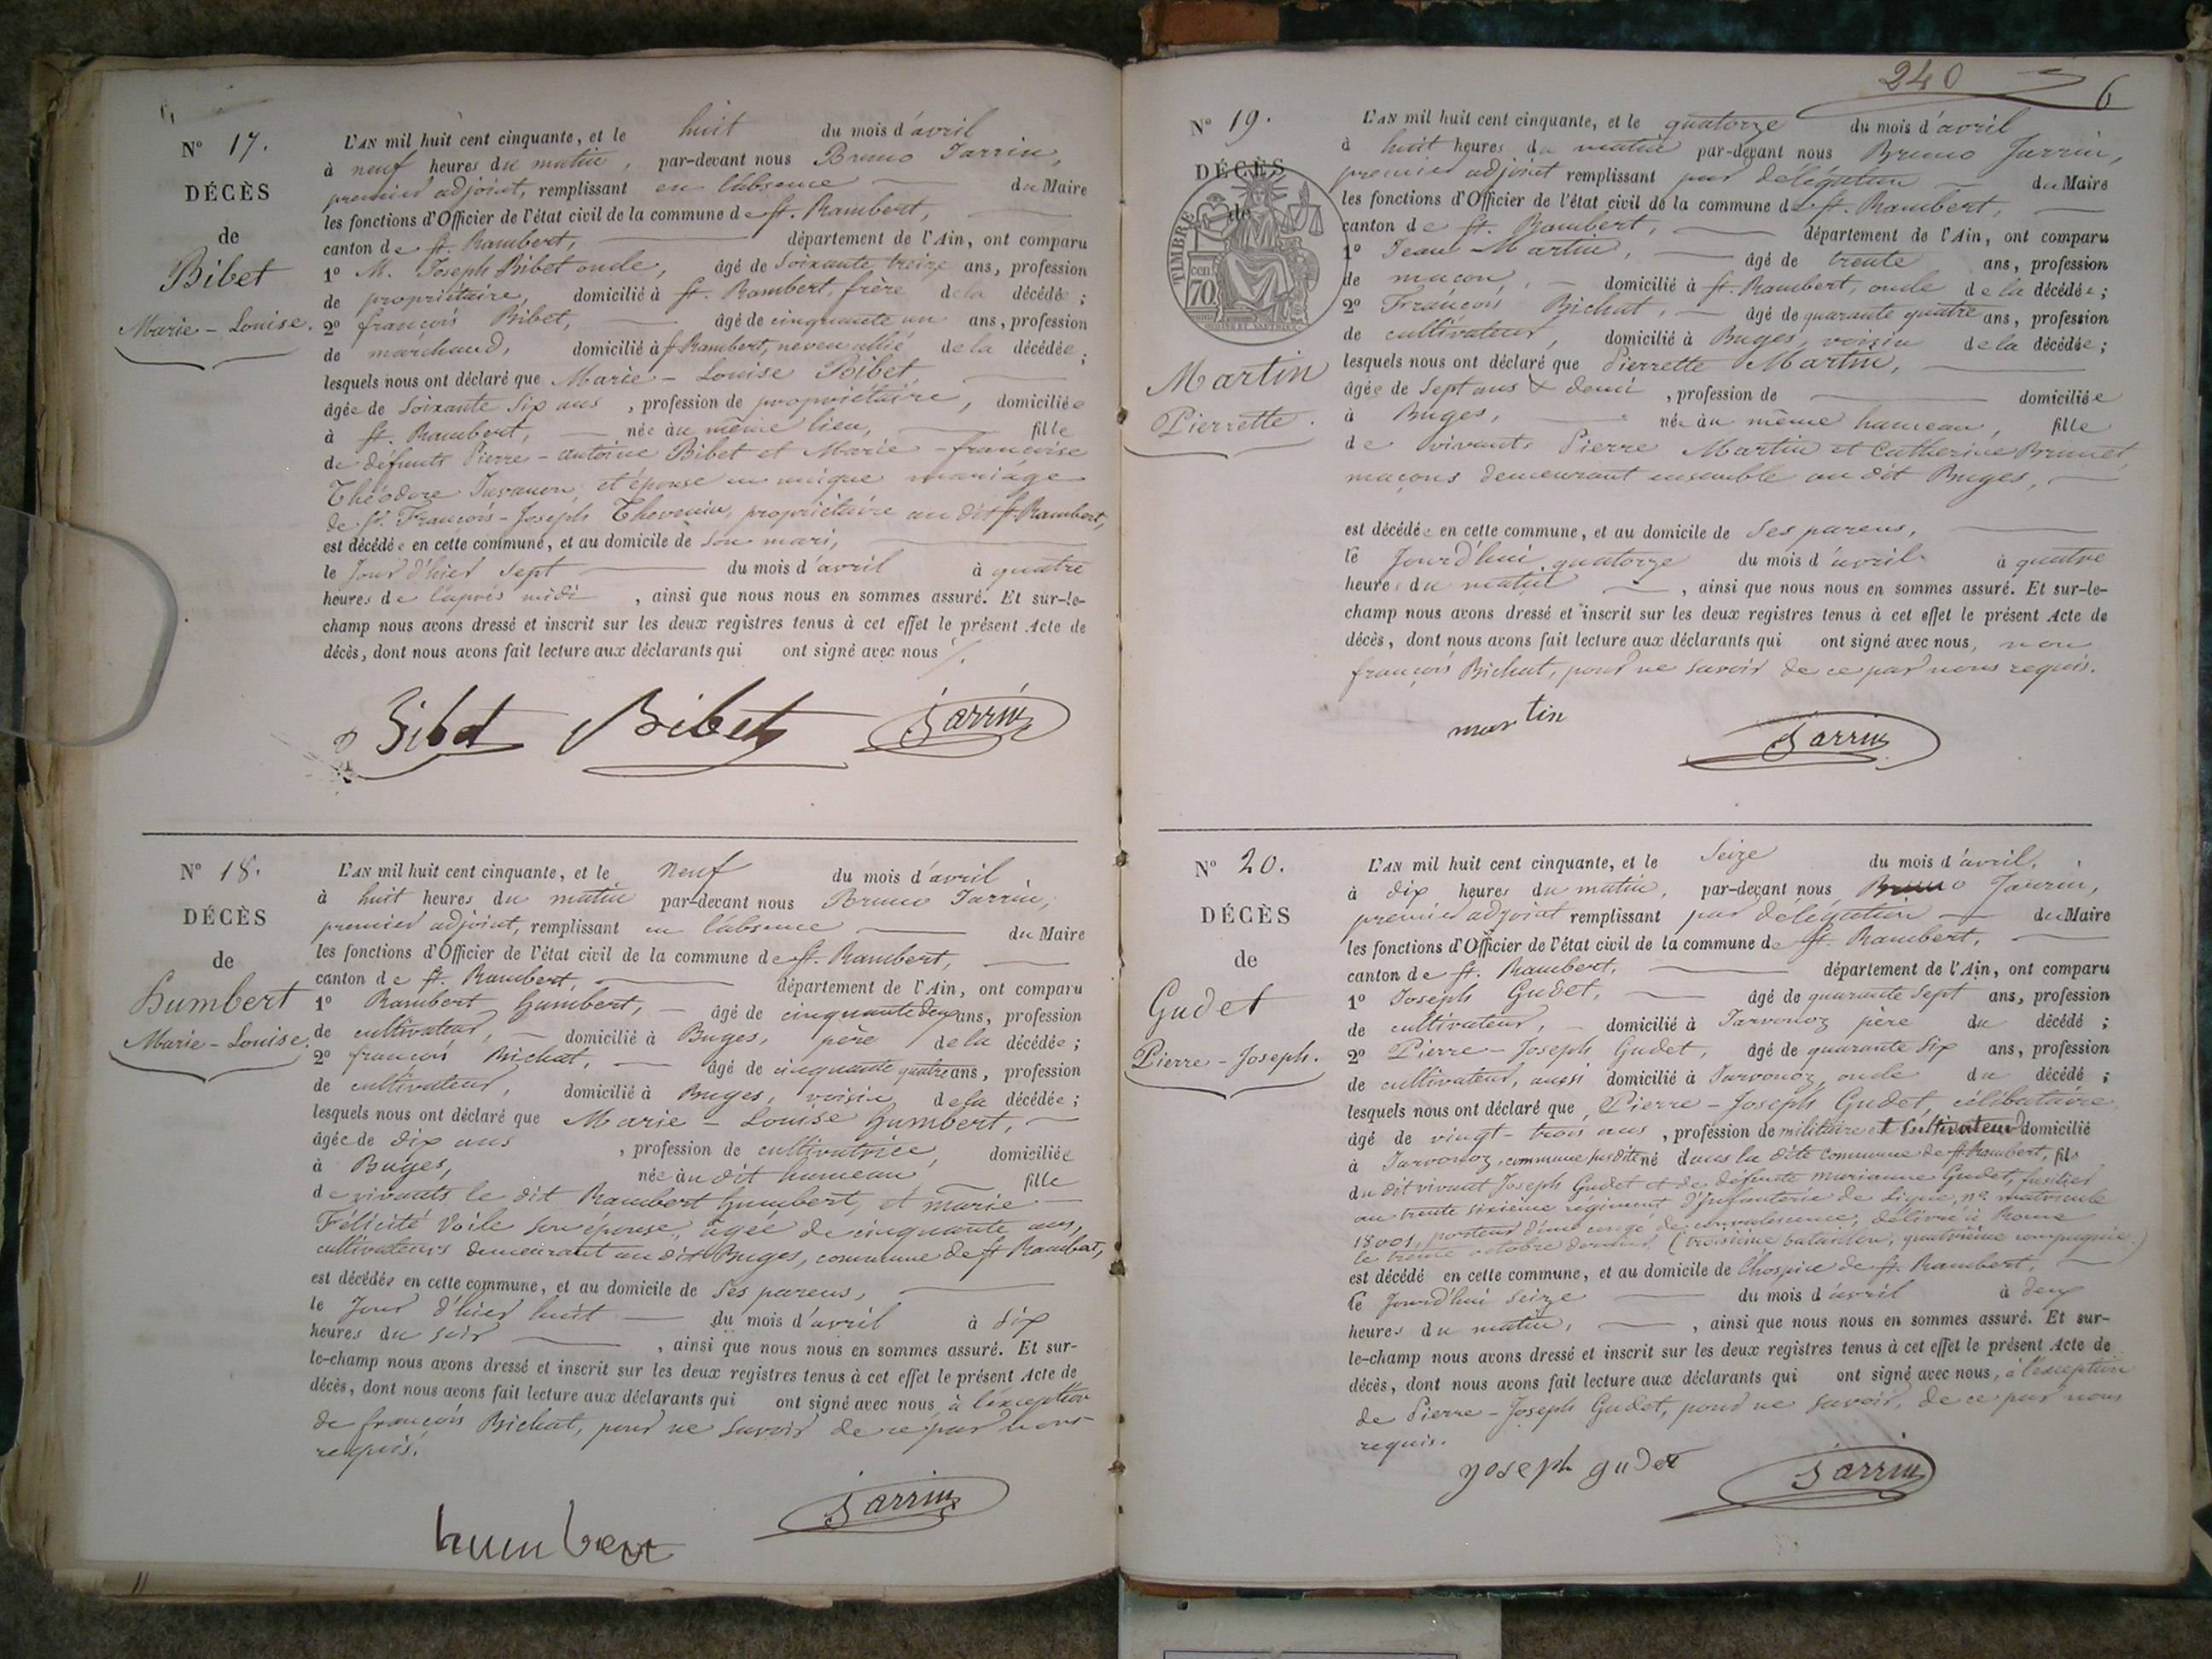 N° 17.
DÉCÈS
de
Bibet
Marie - Louise.
L'AN mil huit cent cinquante, et le huit du mois d'avril
à neuf heures du matin, par-devant nous Bruno Jarrin,
premier adjoint, remplissant en l'absence du Maire
les fonctions d'Officier de l'état civil de la commune de St. Rambert,
canton de St. Rambert, département de l'Ain, ont comparu
1° M. Joseph Bibet oncle, âgé de soixante treize ans, profession
de propriétaire, domicilié à St. Rambert, frère de la décédée ;
2° françois Bibet, âgé de cinquante un ans, profession
de marchand, domicilié à St Rambert, neveu allié de la décédée ;
lesquels nous ont déclaré que Marie - Louise Bibet,
âgée de soixante six ans, profession de propriétaire, domiciliée
à St. Rambert, née au même lieu, fille
de défunts Pierre - antoine Bibet et Marie - françoise
Théodore Juvanon, et épouse en unique mariage
de Sr. François - Joseph Thevenin, propriétaire au dit St Rambert,
est décédée en cette commune, et au domicile de son mari,
le jour d'hier sept du mois d'avril à quatre
heures de l'après midi, ainsi que nous nous en sommes assuré. Et sur-le-
champ nous avons dressé et inscrit sur les deux registres tenus à cet effet le présent Acte de
décès, dont nous avons fait lecture aux déclarants qui ont signé avec nous.
Bibet Bibet Jarrin
N° 18.
DÉCÈS
de
Humbert
Marie - Louise.
L'AN mil huit cent cinquante, et le neuf du mois d'avril
à huit heures du matin par-devant nous Bruno Jarrin,
premier adjoint, remplissant en l'absence du Maire
les fonctions d'Officier de l'état civil de la commune de St. Rambert,
canton de St. Rambert, département de l'Ain, ont comparu
1° Rambert humbert, âgé de cinquante deux ans, profession
de cultivateur, domicilié à Buges, père de la décédée ;
2° françois Bichat, âgé de cinquante quatre ans, profession
de cultivateur, domicilié à Buges, voisin de la décédée ;
lesquels nous ont déclaré que Marie - Louise humbert,
âgée de dix ans, profession de cultivatrice, domiciliée
à Buges, née au dit hameau fille
de vivants le dit Rambert humbert, et marie
Félicité Voile son épouse, âgée de cinquante ans,
cultivateurs demeurant au dit Buges, commune de St Rambert,
est décédée en cette commune, et au domicile de ses parens,
le jour d'hier huit du mois d'avril à dix
heures du soir, ainsi que nous nous en sommes assuré. Et sur-
le-champ nous avons dressé et inscrit sur les deux registres tenus à cet effet le présent Acte de
décès, dont nous avons fait lecture aux déclarants qui ont signé avec nous à l'exception
de françois Bichat, pour ne savoir de ce par nous
requis.
humbert Jarrin
240 6
N° 19.
DÉCÈS
de
TIMBRE
cen
70
Martin
Pierrette.
L'AN mil huit cent cinquante, et le quatorze du mois d'avril
à huit heures du matin par-devant nous Bruno Jarrin,
premier adjoint remplissant par délégation du Maire
les fonctions d'Officier de l'état civil de la commune de St. Rambert,
canton de St. Rambert, département de l'Ain, ont comparu
1° Jean Martin, âgé de trente ans, profession
de maçon, domicilié à St. Rambert, oncle de la décédée ;
2° François Bichat, âgé de quarante quatre ans, profession
de cultivateur, domicilié à Buges, voisin de la décédée ;
lesquels nous ont déclaré que Pierrette Martin,
âgée de sept ans & demi, profession de domiciliée
à Buges, née au même hameau, fille
de vivants Pierre Martin et Catherine Brunet
maçons demeurant ensemble au dit Buges,
est décédée en cette commune, et au domicile de ses parens,
le jourd'hui quatorze du mois d'avril à quatre
heures du matin, ainsi que nous nous en sommes assuré. Et sur-le-
champ nous avons dressé et inscrit sur les deux registres tenus à cet effet le présent Acte de
décès, dont nous avons fait lecture aux déclarants qui ont signé avec nous, non
françois Bichat, pour ne savoir de ce par nous requis.
martin Jarrin
N° 20.
DÉCÈS
de
Gudet
Pierre - Joseph.
L'AN mil huit cent cinquante, et le seize du mois d'avril.
à dix heures du matin, par-devant nous Bruno Jarrin,
premier adjoint remplissant par délégation du Maire
les fonctions d'Officier de l'état civil de la commune de St. Rambert,
canton de St. Rambert, département de l'Ain, ont comparu
1° Joseph Gudet, âgé de quarante sept ans, profession
de cultivateur, domicilié à Jarvonoz père du décédé ;
2° Pierre - Joseph Gudet, âgé de quarante six ans, profession
de cultivateur, aussi domicilié à Jarvonoz, oncle du décédé ;
lesquels nous ont déclaré que Pierre - Joseph Gudet, célibataire
âgé de vingt - trois ans, profession de militaire et cultivateur domicilié
à Jarvonoz, commune susdite né dans la dite commune de St. Rambert, fils
du dit vivant Joseph Gudet et de défunte marianne Gudet, fusilier
au trente sixième régiment d'Infanterie de Ligne, n° matricule
18001, porteur d'une congé de convalescence, délivré à Rome
le trente octobre dernier, (troisième bataillon, quatrième compagnie.)
est décédé en cette commune, et au domicile de l'hospice de St. Rambert,
le jourd'hui seize du mois d'avril à deux
heures du matin, ainsi que nous nous en sommes assuré. Et sur-
le-champ nous avons dressé et inscrit sur les deux registres tenus à cet effet le présent Acte de
décès, dont nous avons fait lecture aux déclarants qui ont signé avec nous, à l'exception
de Pierre - Joseph Gudet, pour ne savoir, de ce par nous
requis.
yoseph gudet Jarrin